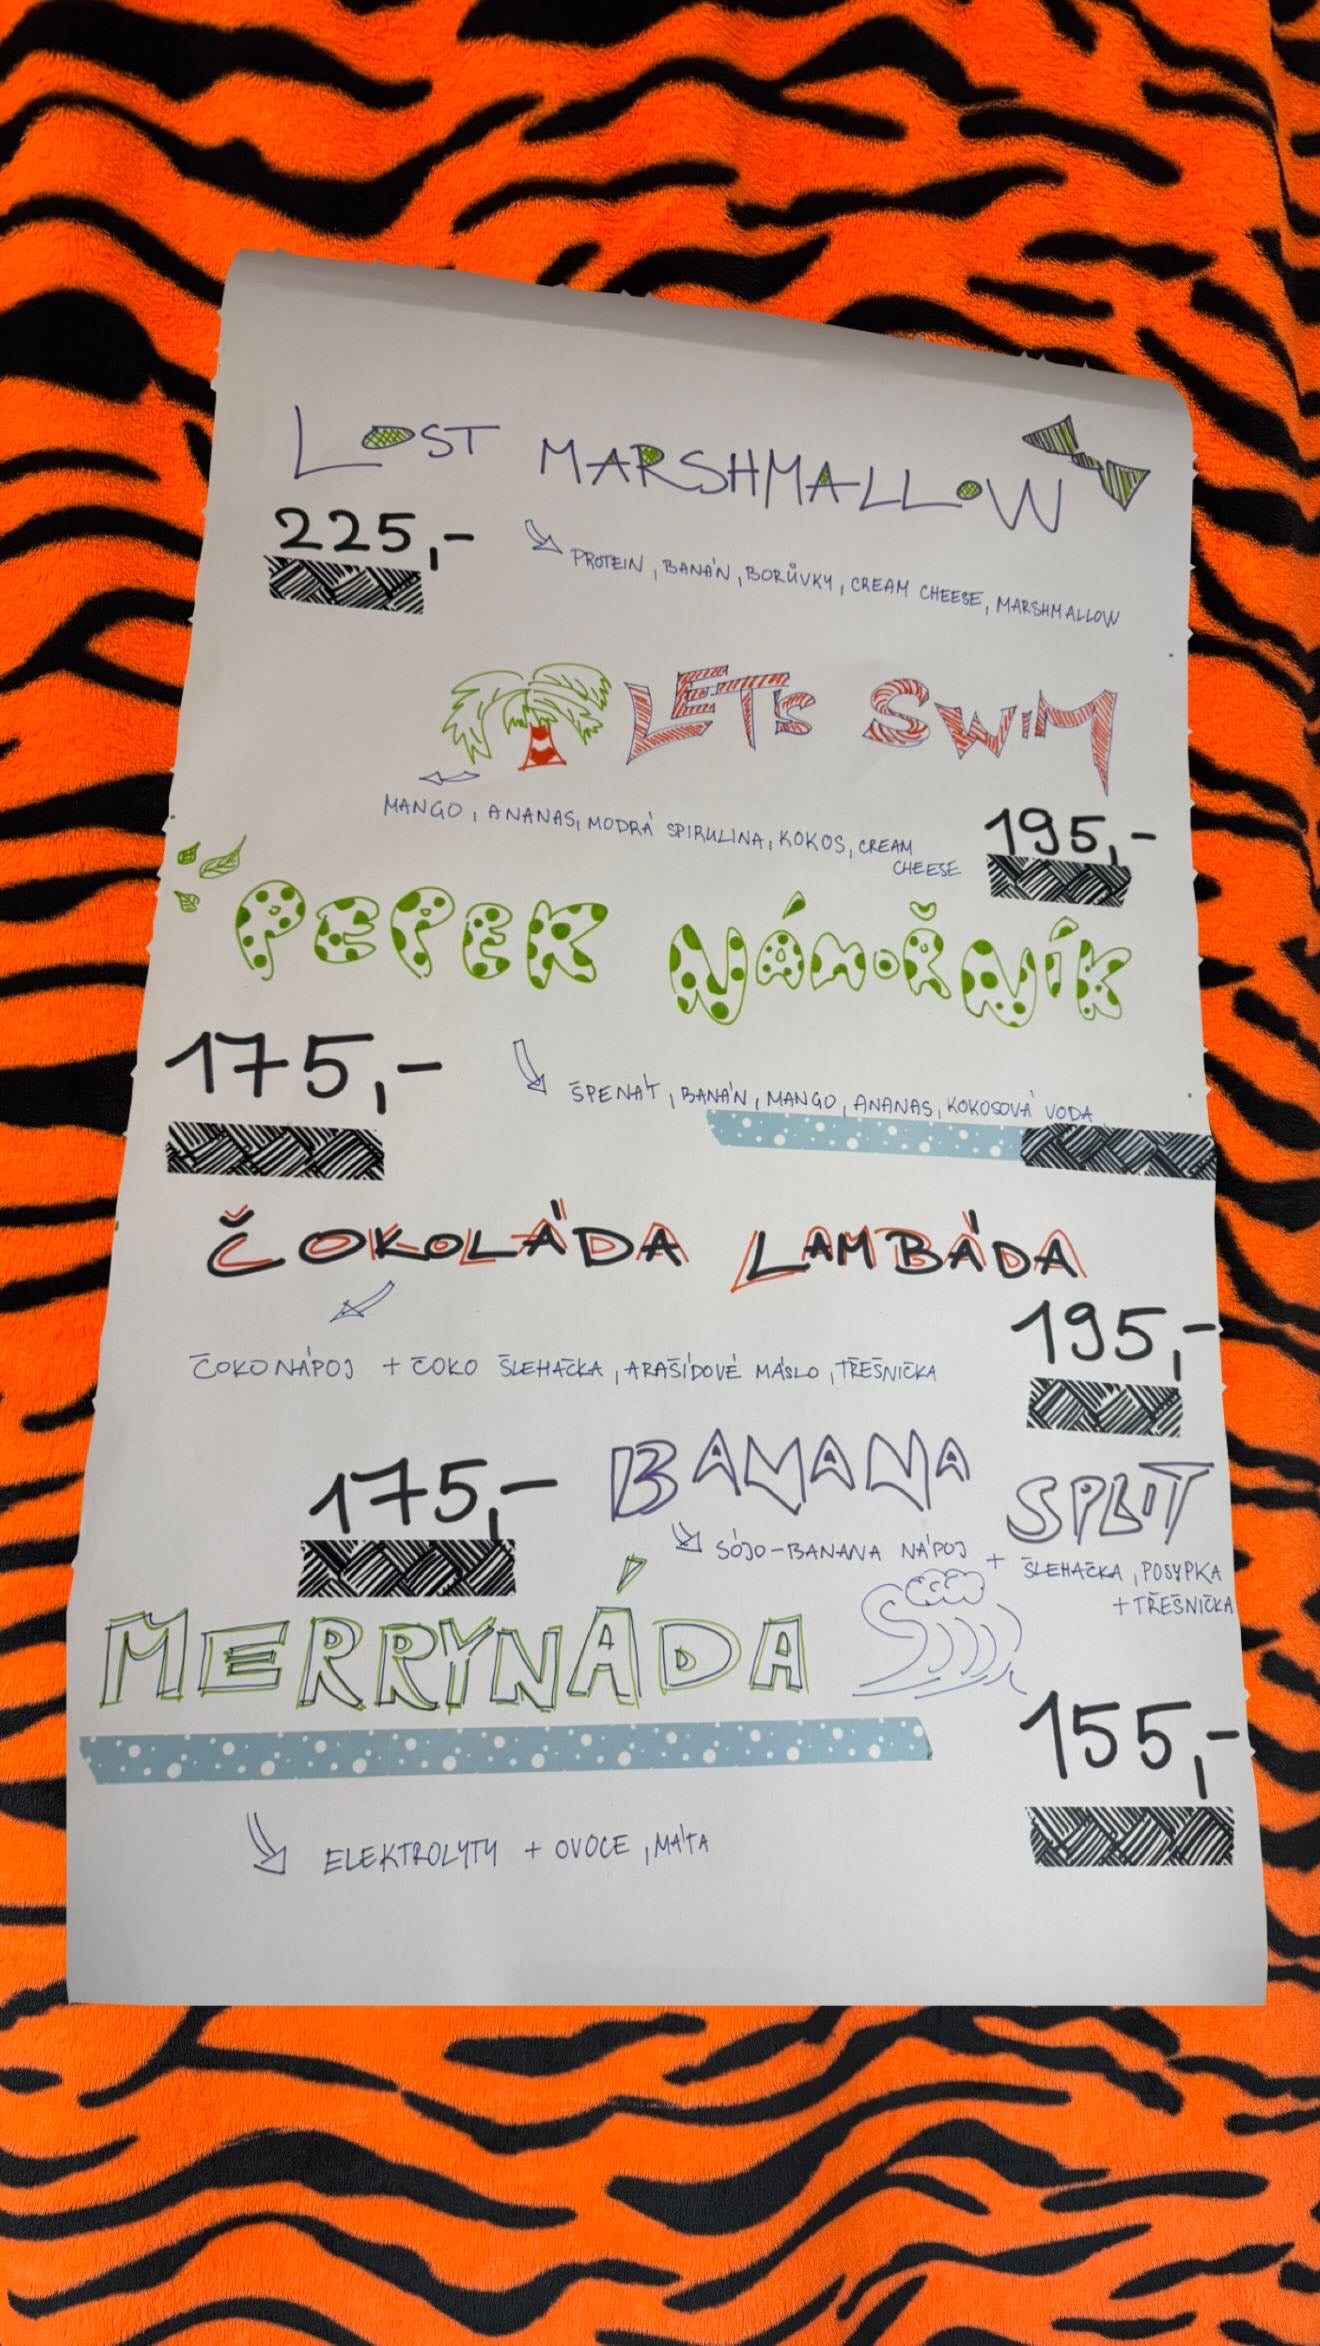 LOST MARSHMALLOW
225,-
PROTEIN, BANÁN, BORŮVKY, CREAM CHEESE, MARSHMALLOW
LETS SWIM
MANGO, ANANAS, MODRÁ SPIRULINA, KOKOS, CREAM
CHEESE
195,-
PEPEK NÁMOŘNÍK
175,-
ŠPENÁT, BANÁN, MANGO, ANANAS, KOKOSOVÁ VODA
ČOKOLÁDA LAMBÁDA
195,-
ČOKONÁPOJ + ČOKO ŠLEHAČKA, ARAŠÍDOVÉ MÁSLO, TŘEŠNIČKA
175,-
BANANA SPLIT
SÓJO-BANANA NÁPOJ + ŠLEHAČKA, POSYPKA
+ TŘEŠNIČKA
MERRYNÁDA
155,-
ELEKTROLYTY + OVOCE, MÁTA